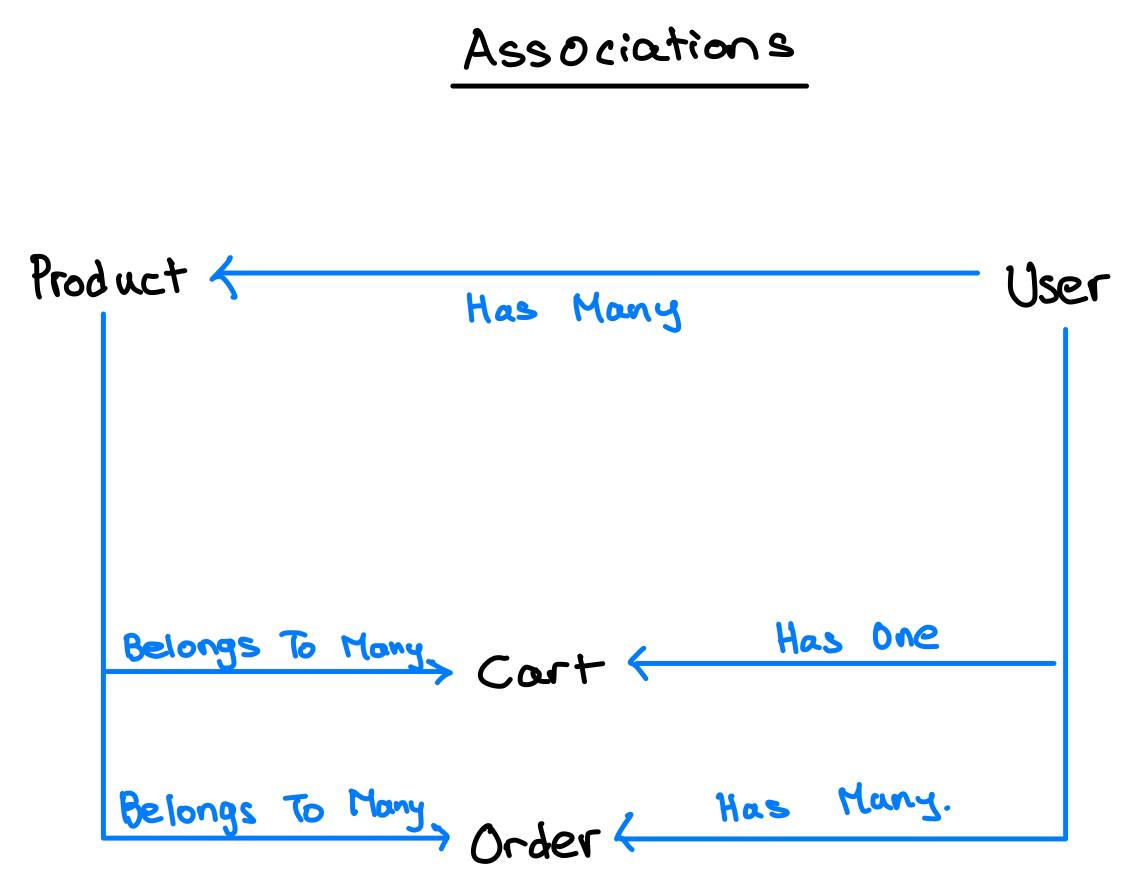 Associations
Product
User
Has Many
Belongs To Many
Cart
Has One
Belongs To Many
Order
Has Many.